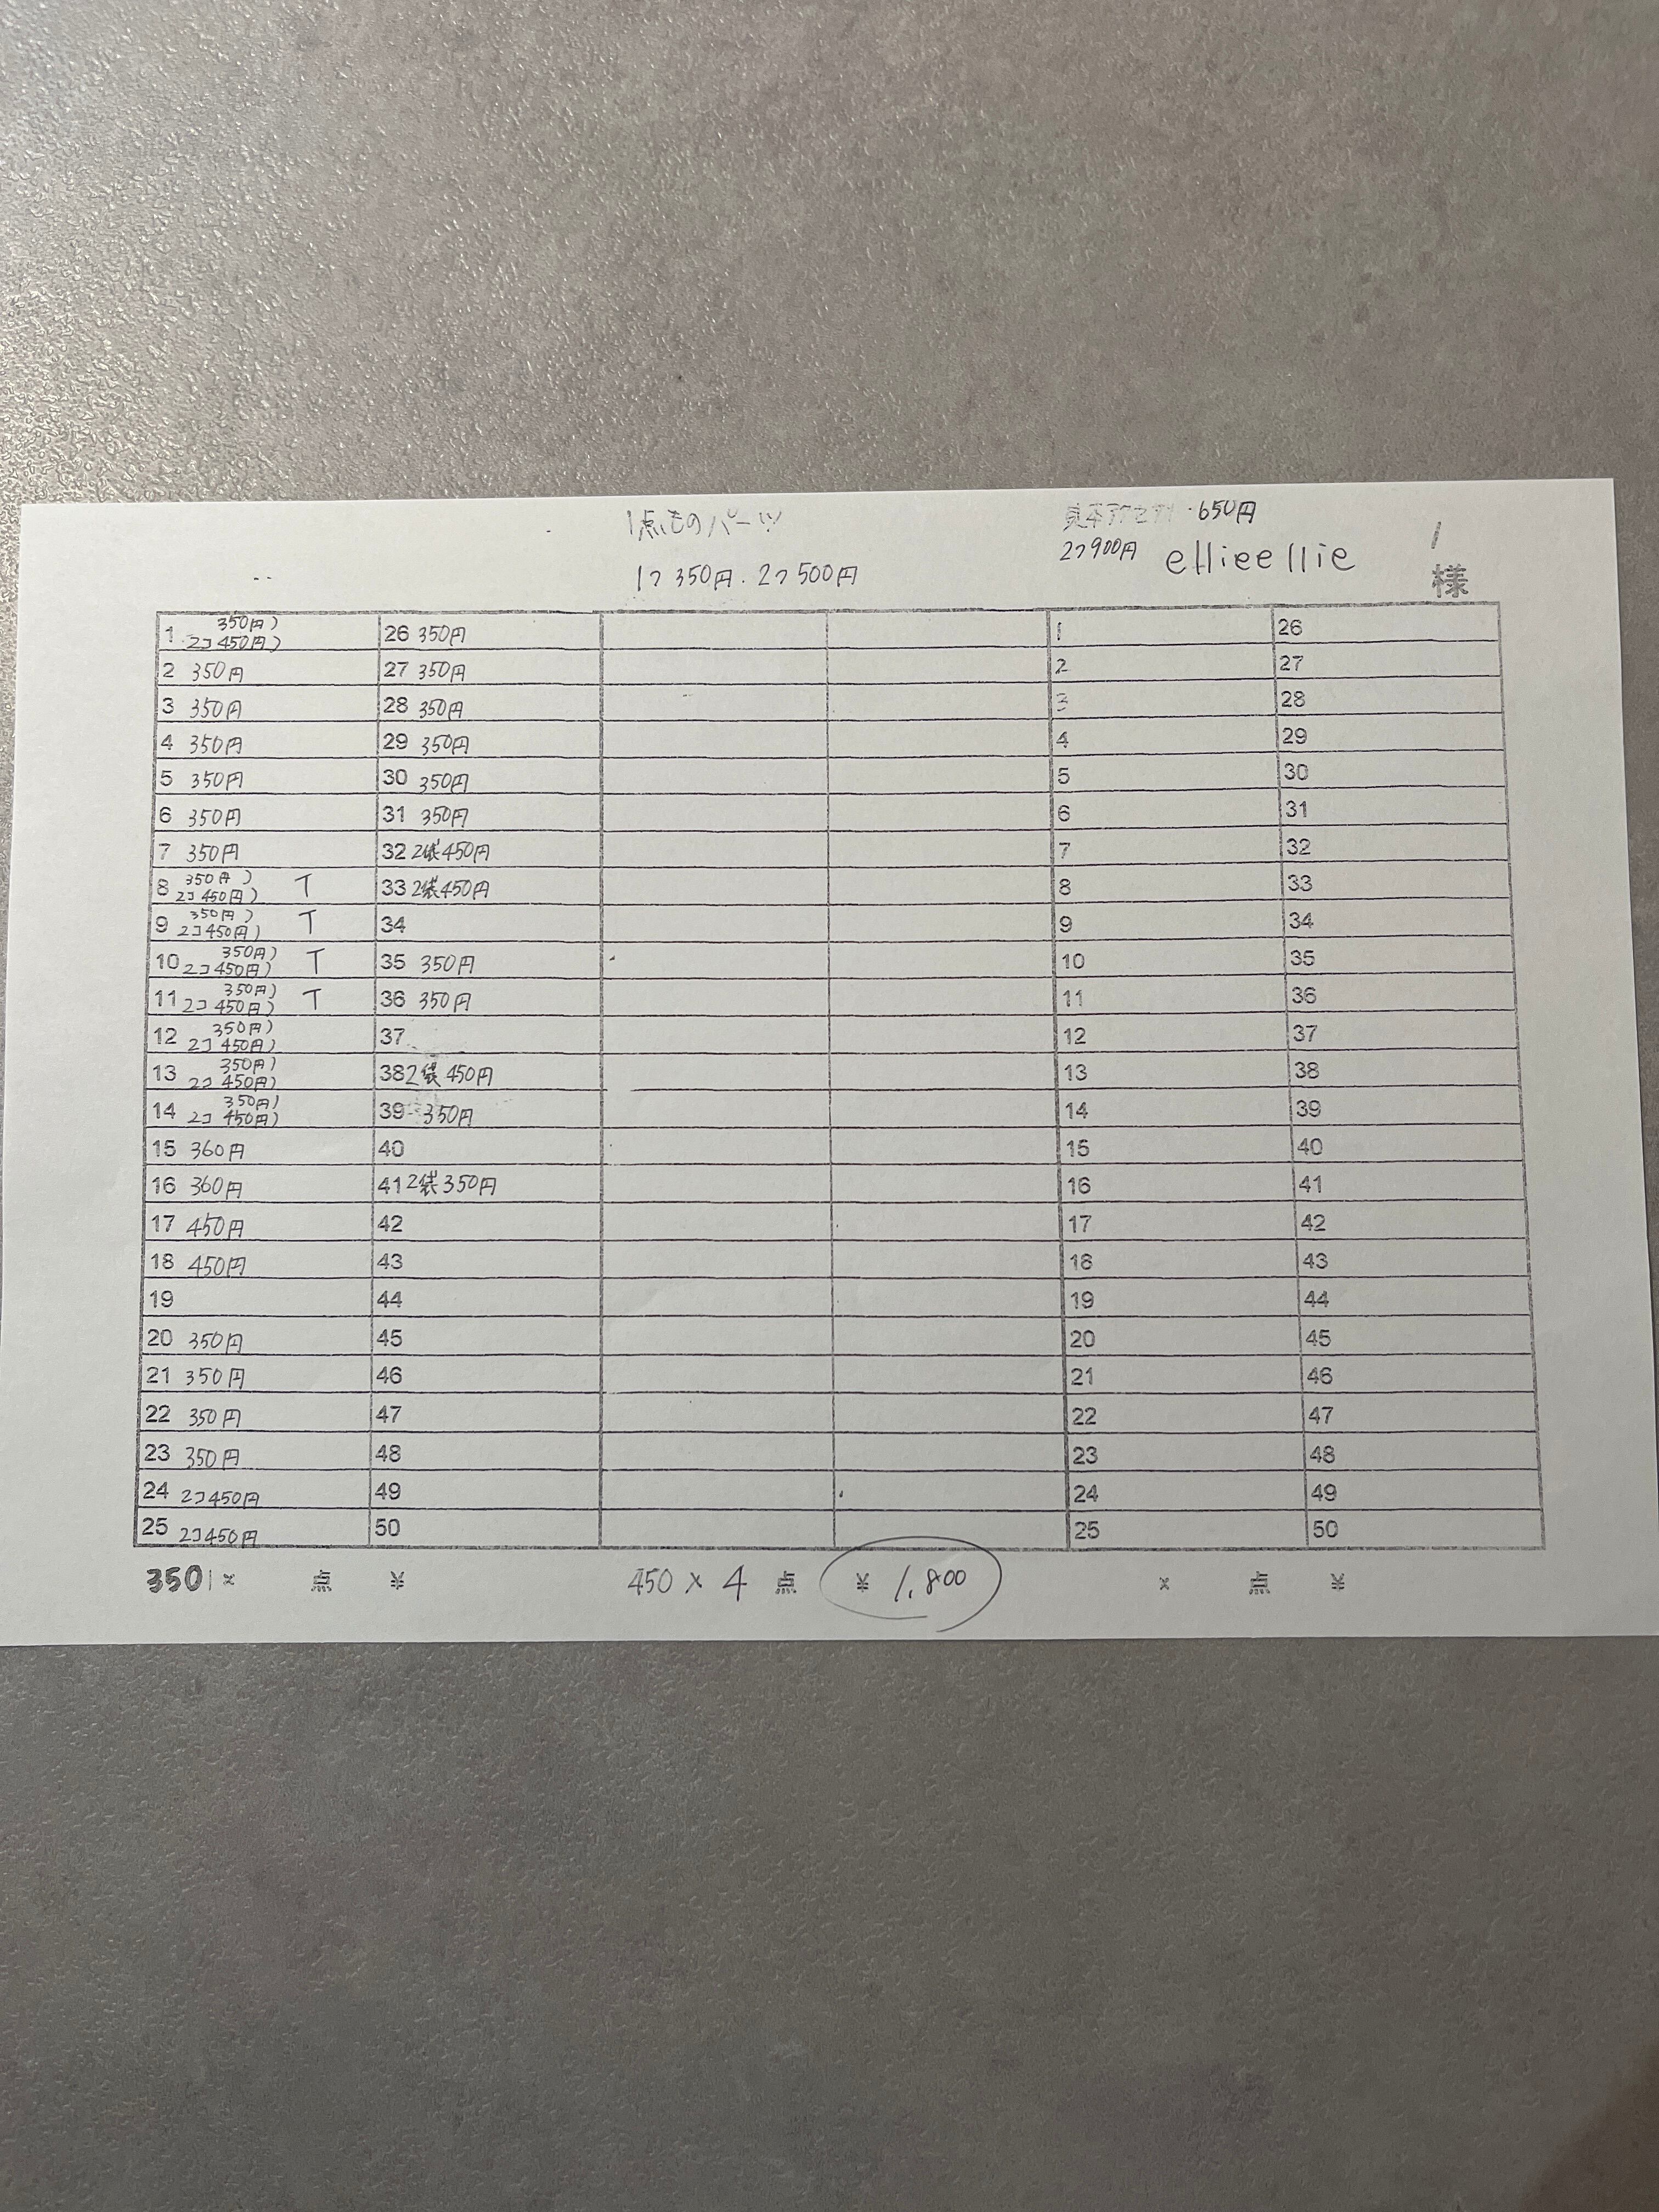 1点ものパーツ
1つ 350円・2つ 500円
見本アクセサリ・650円
2つ900円 ellieellie 様
1 350円) 2コ450円) 26 350円 1 26
2 350円 27 350円 2 27
3 350円 28 350円 3 28
4 350円 29 350円 4 29
5 350円 30 350円 5 30
6 350円 31 350円 6 31
7 350円 32 2袋450円 7 32
8 350円) 2コ450円) T 33 2袋450円 8 33
9 350円) 2コ450円) T 34 9 34
10 350円) 2コ450円) T 35 350円 10 35
11 350円) 2コ450円) T 36 350円 11 36
12 350円) 2コ450円) 37 12 37
13 350円) 2コ450円) 38 2袋 450円 13 38
14 350円) 2コ450円) 39 350円 14 39
15 360円 40 15 40
16 360円 41 2袋350円 16 41
17 450円 42 17 42
18 450円 43 18 43
19 44 19 44
20 350円 45 20 45
21 350円 46 21 46
22 350円 47 22 47
23 350円 48 23 48
24 2コ450円 49 24 49
25 2コ450円 50 25 50
350 × 点 ¥ 450 × 4 点 ¥ 1,800 × 点 ¥